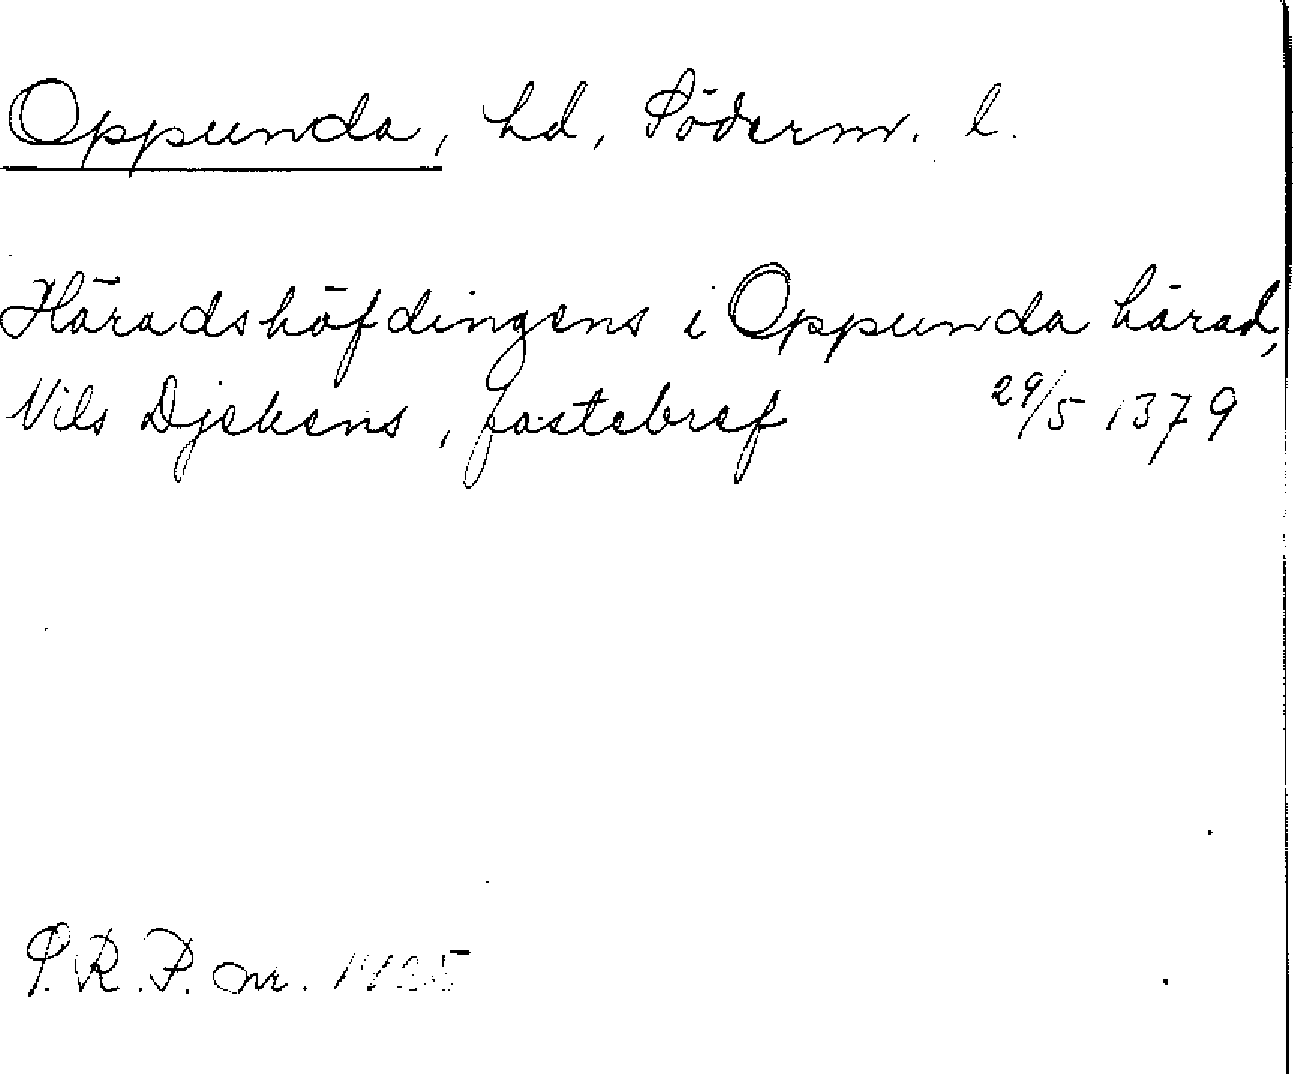 Oppunda, hd, Söderm. l.
Häradshöfdingens i Oppunda härad,
Nils Djekens, fastebref 29/5 1379
S.R.P. nr. 1425